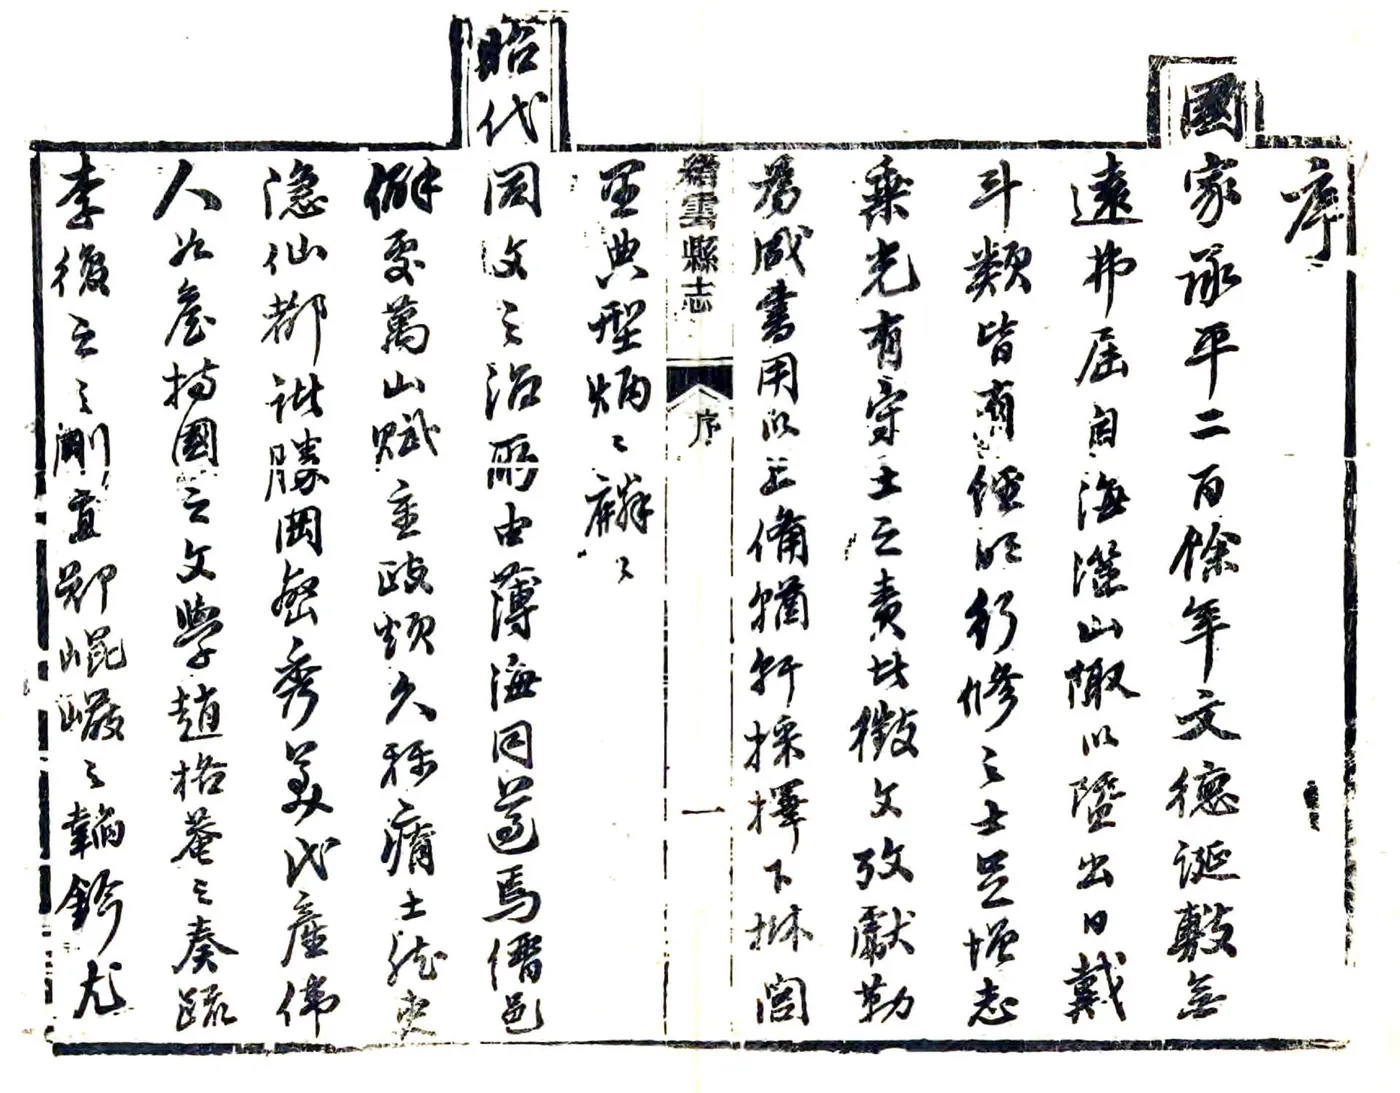 序
國家承平二百餘年文德誕敷無
遠弗屆自海澨山陬以曁出日戴
斗類皆有經明行修之士足增志
乘光有守土之責者徵文攷獻勒
爲成書用以上備輶軒採擇下揀閭
里典型炳炳麟麟
縉雲縣志
序
一
昭代同文之治所由薄海同遵焉縉邑
僻處萬山賦重政煩久稱瘠土然史
隱仙都詭勝岡巒秀美代產偉
人如詹持國之文學趙格菴之奏疏
李復之之剛直鄭崐巖之韜鈐尤